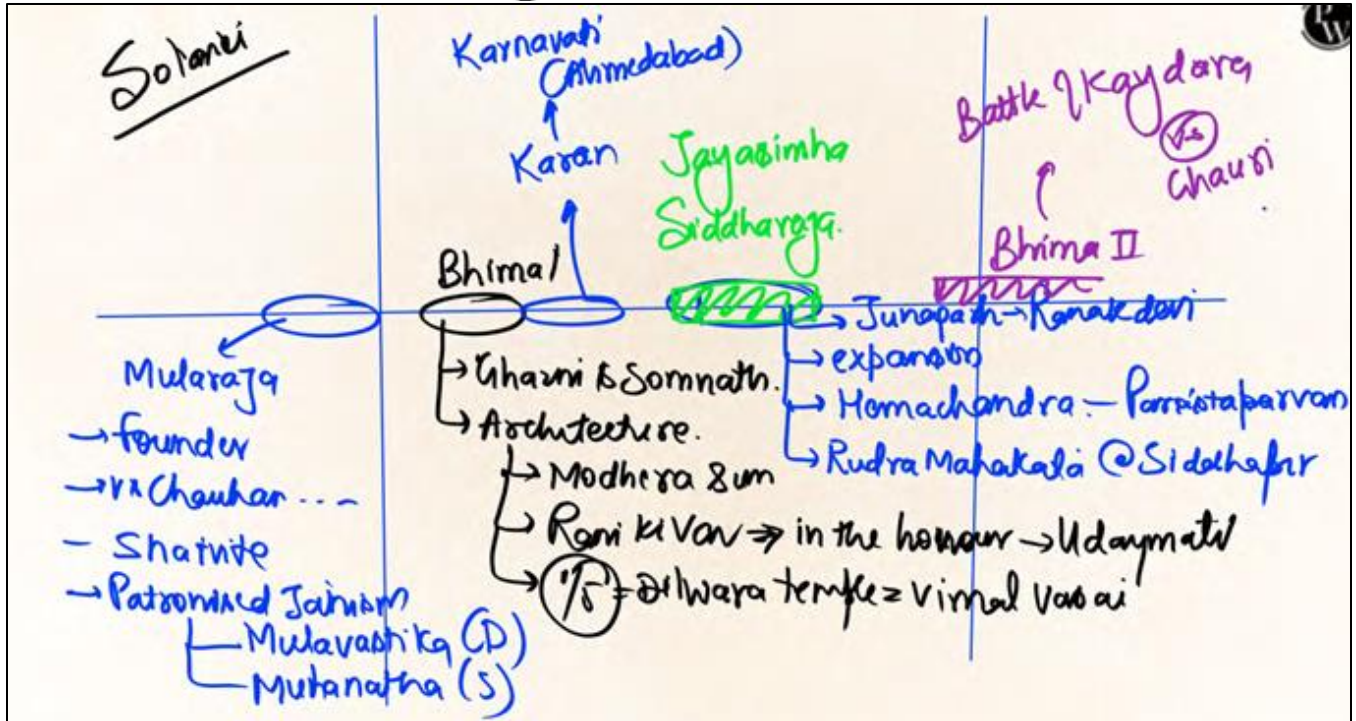 Solanki
PW
Karnavati
(Ahmedabad)
Karan
Jayasimha
Siddharaja.
Battle of Kaydara
vs
Ghauri
Bhima II
Bhima I
Mularaja
→ founder
→ vs Chauhan ...
- Shaivite
→ Patronised Jainism
Mulavastika (D)
Mulanatha (S)
→ Ghazni & Somnath.
→ Architecture.
→ Modhera Sun
→ Rani ki Vav ⇒ in the honour → Udaymati
1/5 = Dilwara temple = Vimal Vasai
→ Junagarh → Ranakdevi
→ expansion
→ Hemachandra - Parisistaparvan
→ Rudra Mahakala @ Siddhapur